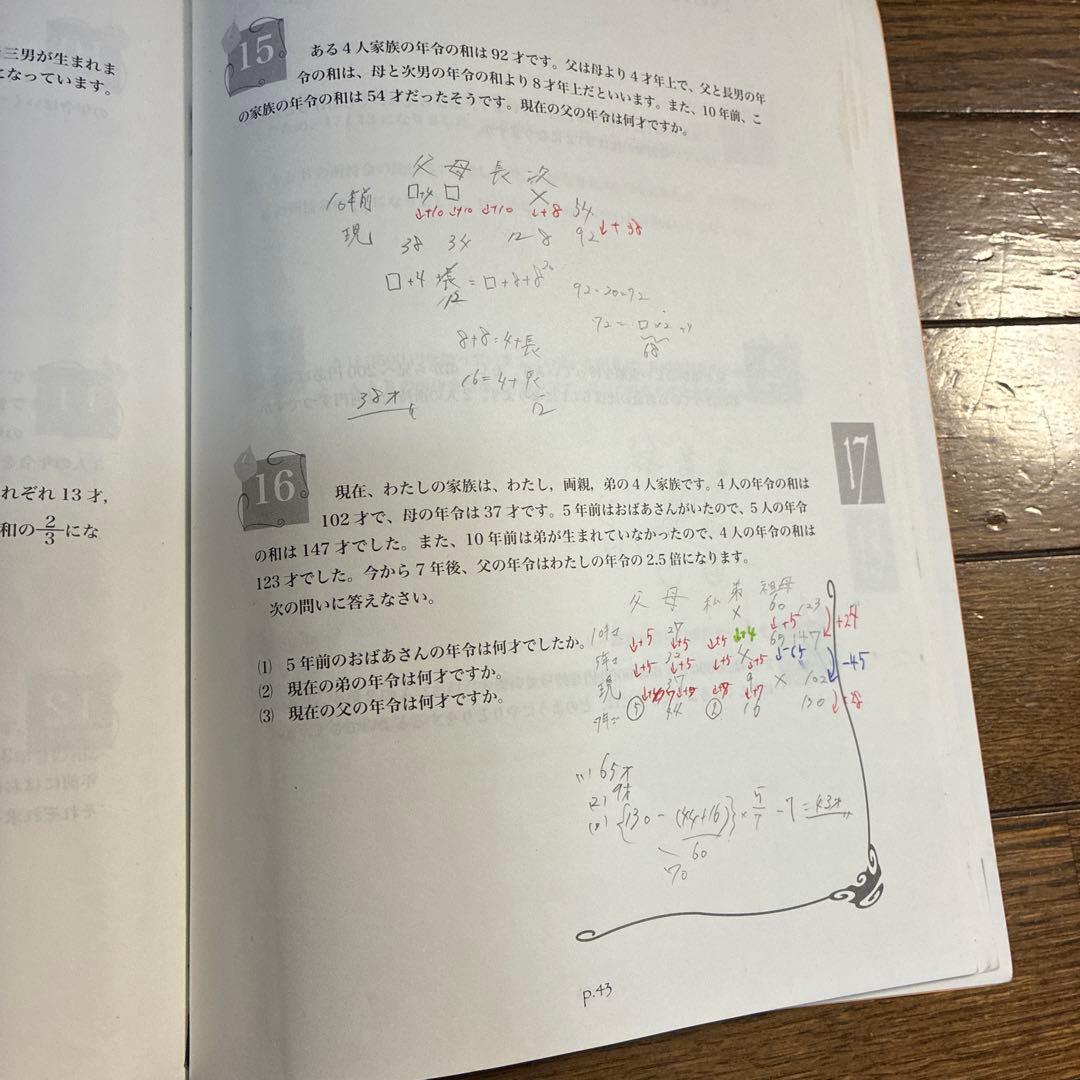 三男が生まれま
になっています。
れぞれ 13 才,
和の2/3にな
15
ある4人家族の年令の和は92才です。父は母より4才年上で、父と長男の年
令の和は、母と次男の年令の和より8才年上だといいます。また、10年前、こ
の家族の年令の和は54才だったそうです。現在の父の年令は何才ですか。
父 母 長 次
10年前 □+4 □ × 54
↓+10 ↓+10 ↓+10 ↓+8 ↓+38
現 38 34 12 8 92
12
92-20=72
8+8=4+長
16=4+長
12
68
38才
16
現在、わたしの家族は、わたし，両親，弟の4人家族です。4人の年令の和は
102才で、母の年令は37才です。5年前はおばあさんがいたので、5人の年令
の和は147才でした。また、10年前は弟が生まれていなかったので、4人の年令の和は
123才でした。今から7年後、父の年令はわたしの年令の2.5倍になります。
次の問いに答えなさい。
⑴ 5年前のおばあさんの年令は何才でしたか。
⑵ 現在の弟の年令は何才ですか。
⑶ 現在の父の年令は何才ですか。
17
父 母 私 弟 祖母
27 × 60 123
↓+5 ↓+5 ↓+5 ↓+4 ↓+5 +24
32 4 65 147
↓+5 ↓+5 ↓+5 ↓+5 ↓-65 -45
現 37 9 × 102
⑤ 44 ② 16 130
(1) 65才
(2) 9才
(3) {130-(44+16)}×5/7-7=43才
60
70
p.43